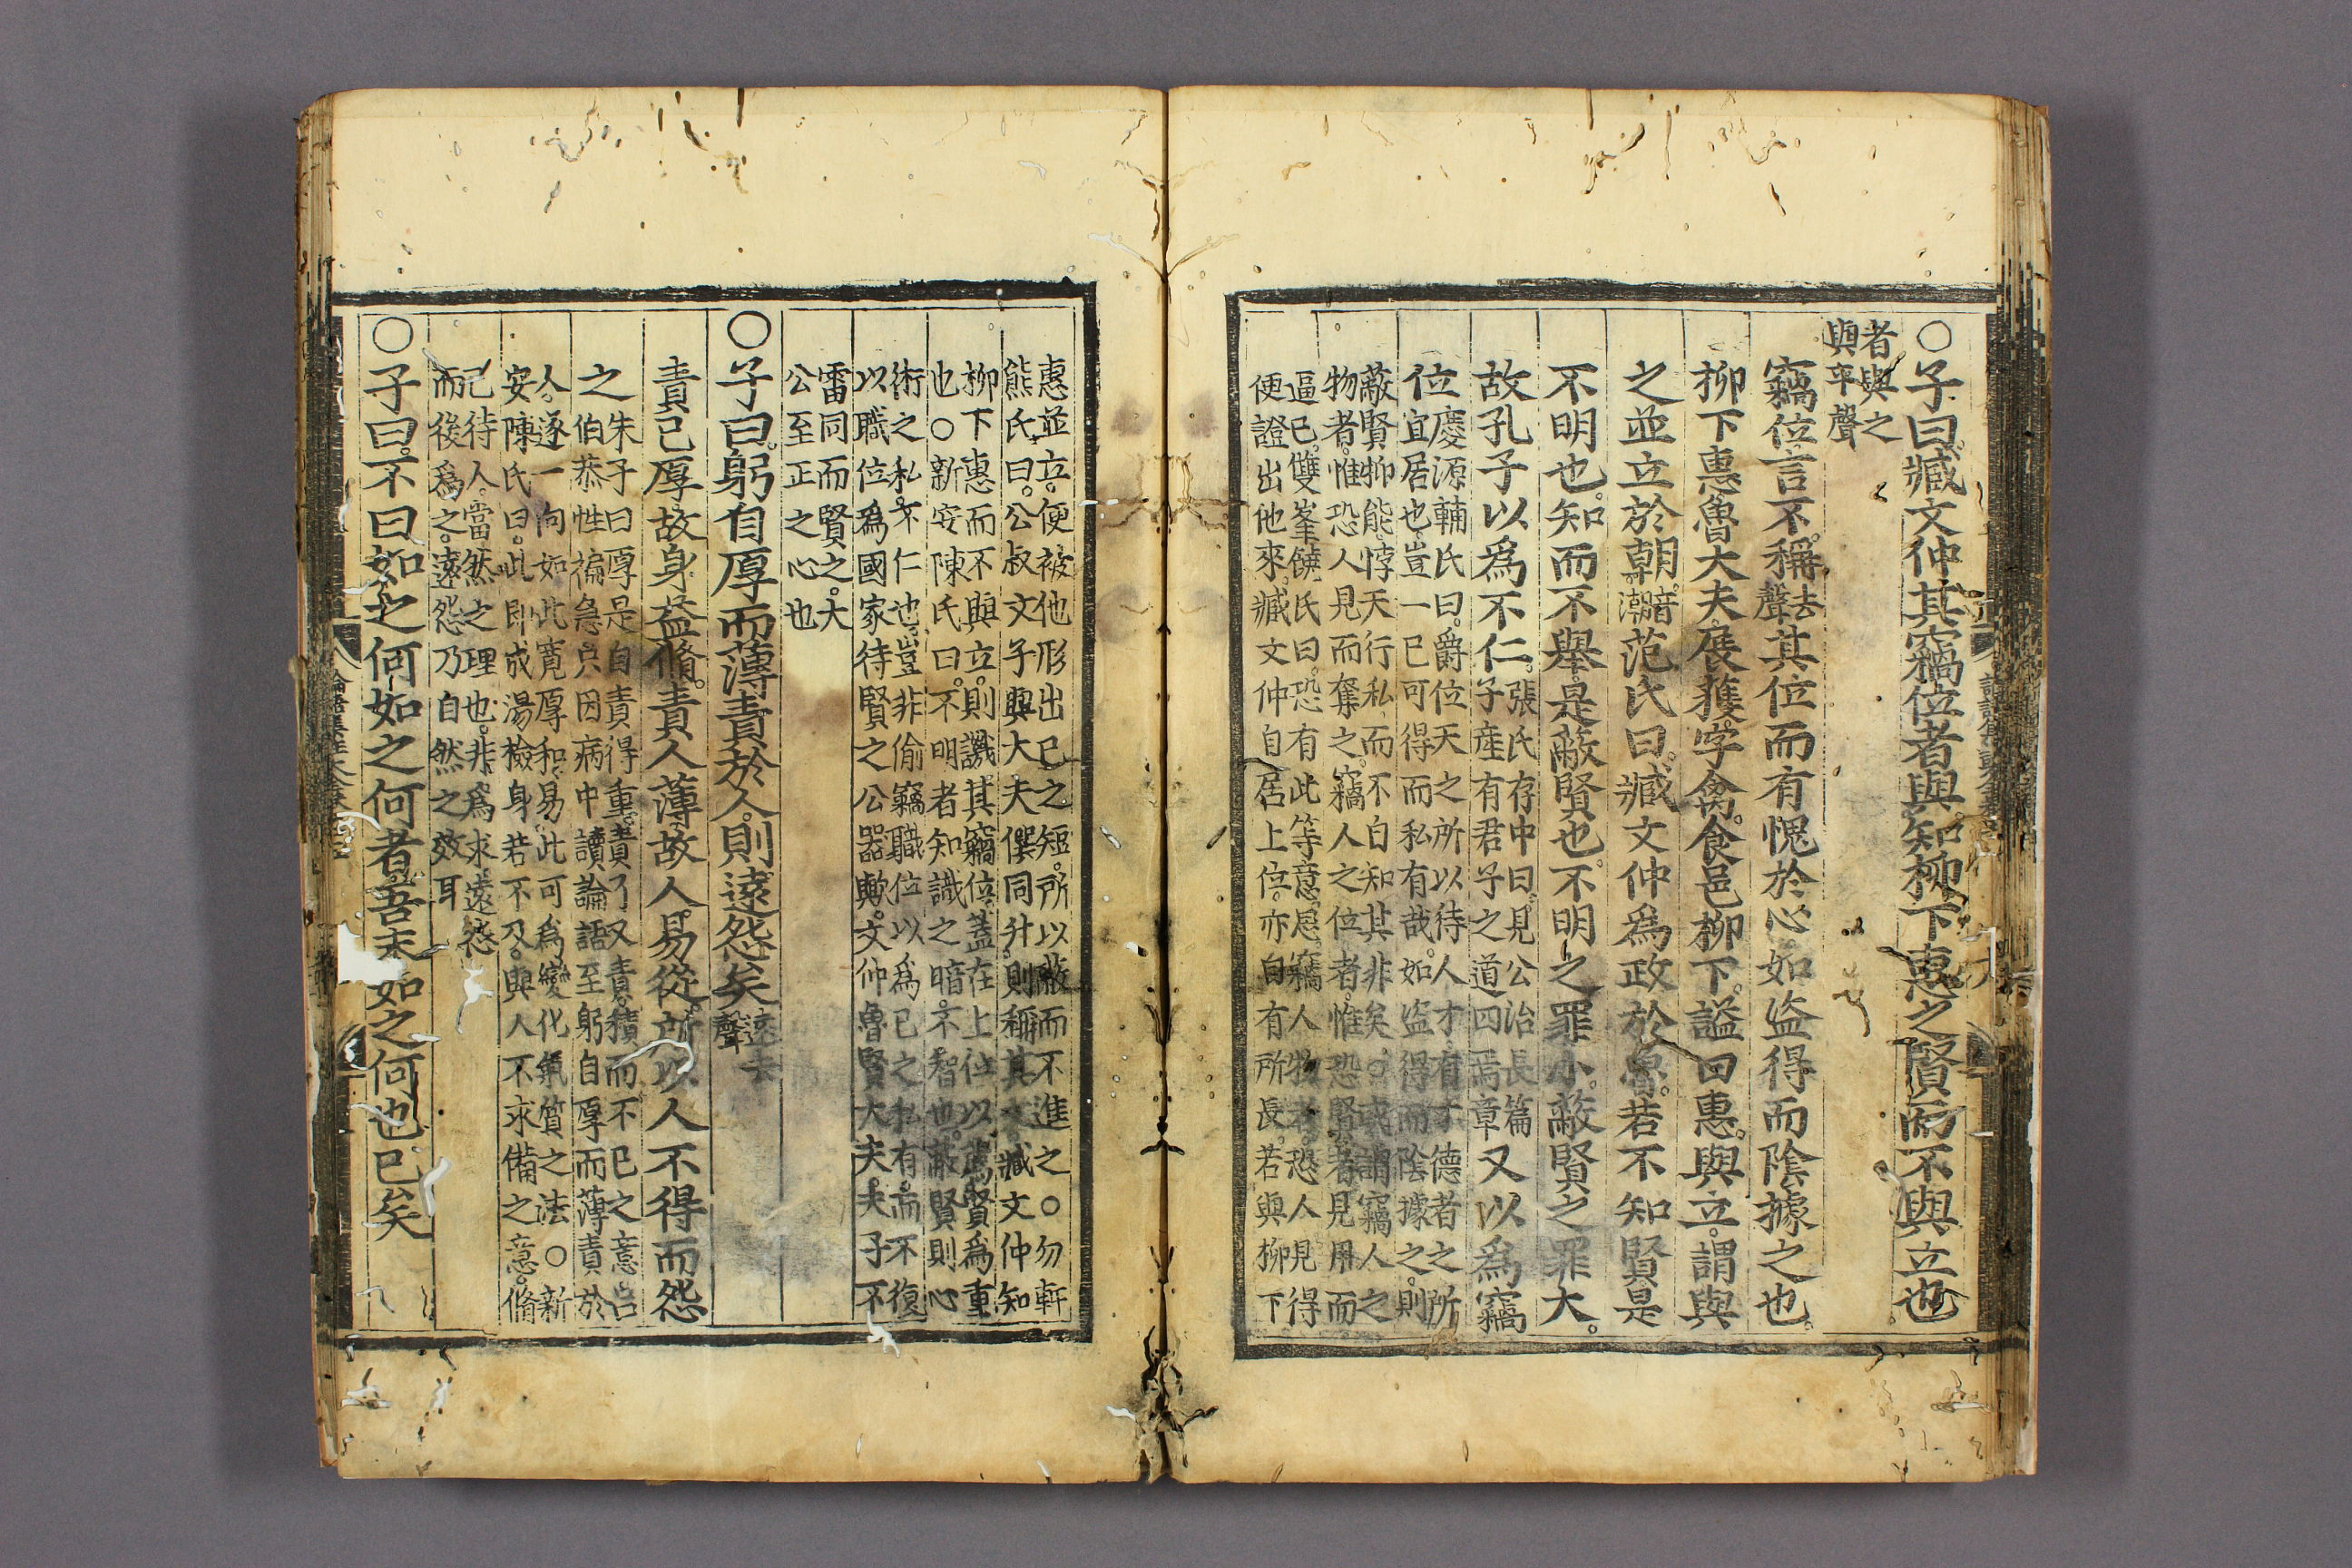 ○子曰臧文仲其竊位者與知柳下惠之賢而不與立也
者與之
與平聲
竊位言不稱去聲其位而有愧於心如盜得而陰據之也
柳下惠魯大夫展獲字禽食邑柳下謚曰惠與立謂與
之並立於朝音潮范氏曰臧文仲爲政於魯若不知賢是
不明也知而不舉是蔽賢也不明之罪小蔽賢之罪大
故孔子以爲不仁張氏存中曰見公冶長篇
子産有君子之道四焉章又以爲竊
位慶源輔氏曰爵位天之所以待人才有才德者之所
宜居也豈一已可得而私有哉如盜得而陰據之則
蔽賢抑能悖天行私而不白知其非矣○或謂竊人之
物者惟恐人見而奪之竊人之位者惟恐賢者見用而
逼已雙峯饒氏曰恐有此等意思竊人物者恐人見得
便證出他來臧文仲自居上位亦自有所長若與柳下
惠並立便被他形出已之短所以蔽而不進之○勿軒
熊氏曰公叔文子與大夫僎同升則稱其文臧文仲知
柳下惠而不與立則譏其竊位蓋在上位以薦賢爲重
也○新安陳氏曰不明者知識之暗不智也蔽賢則心
術之私不仁也豈非偷竊職位以爲已之私有而不復
以職位爲國家待賢之公器歟文仲魯賢大夫夫子不
雷同而賢之大
公至正之心也
○子曰躬自厚而薄責於人則遠怨矣遠去聲
責己厚故身益脩責人薄故人易從所以人不得而怨
之朱子曰厚是自責得重責了又責積而不已之意呂
伯恭性褊急只因病中讀論語至躬自厚而薄責於
人遂一向如此寬厚和易此可爲變化氣質之法○新
安陳氏曰此即成湯檢身若不及與人不求備之意脩
己待人當然之理也非爲求遠怨
而後爲之遠怨乃自然之效耳
○子曰不曰如之何如之何者吾末如之何也已矣